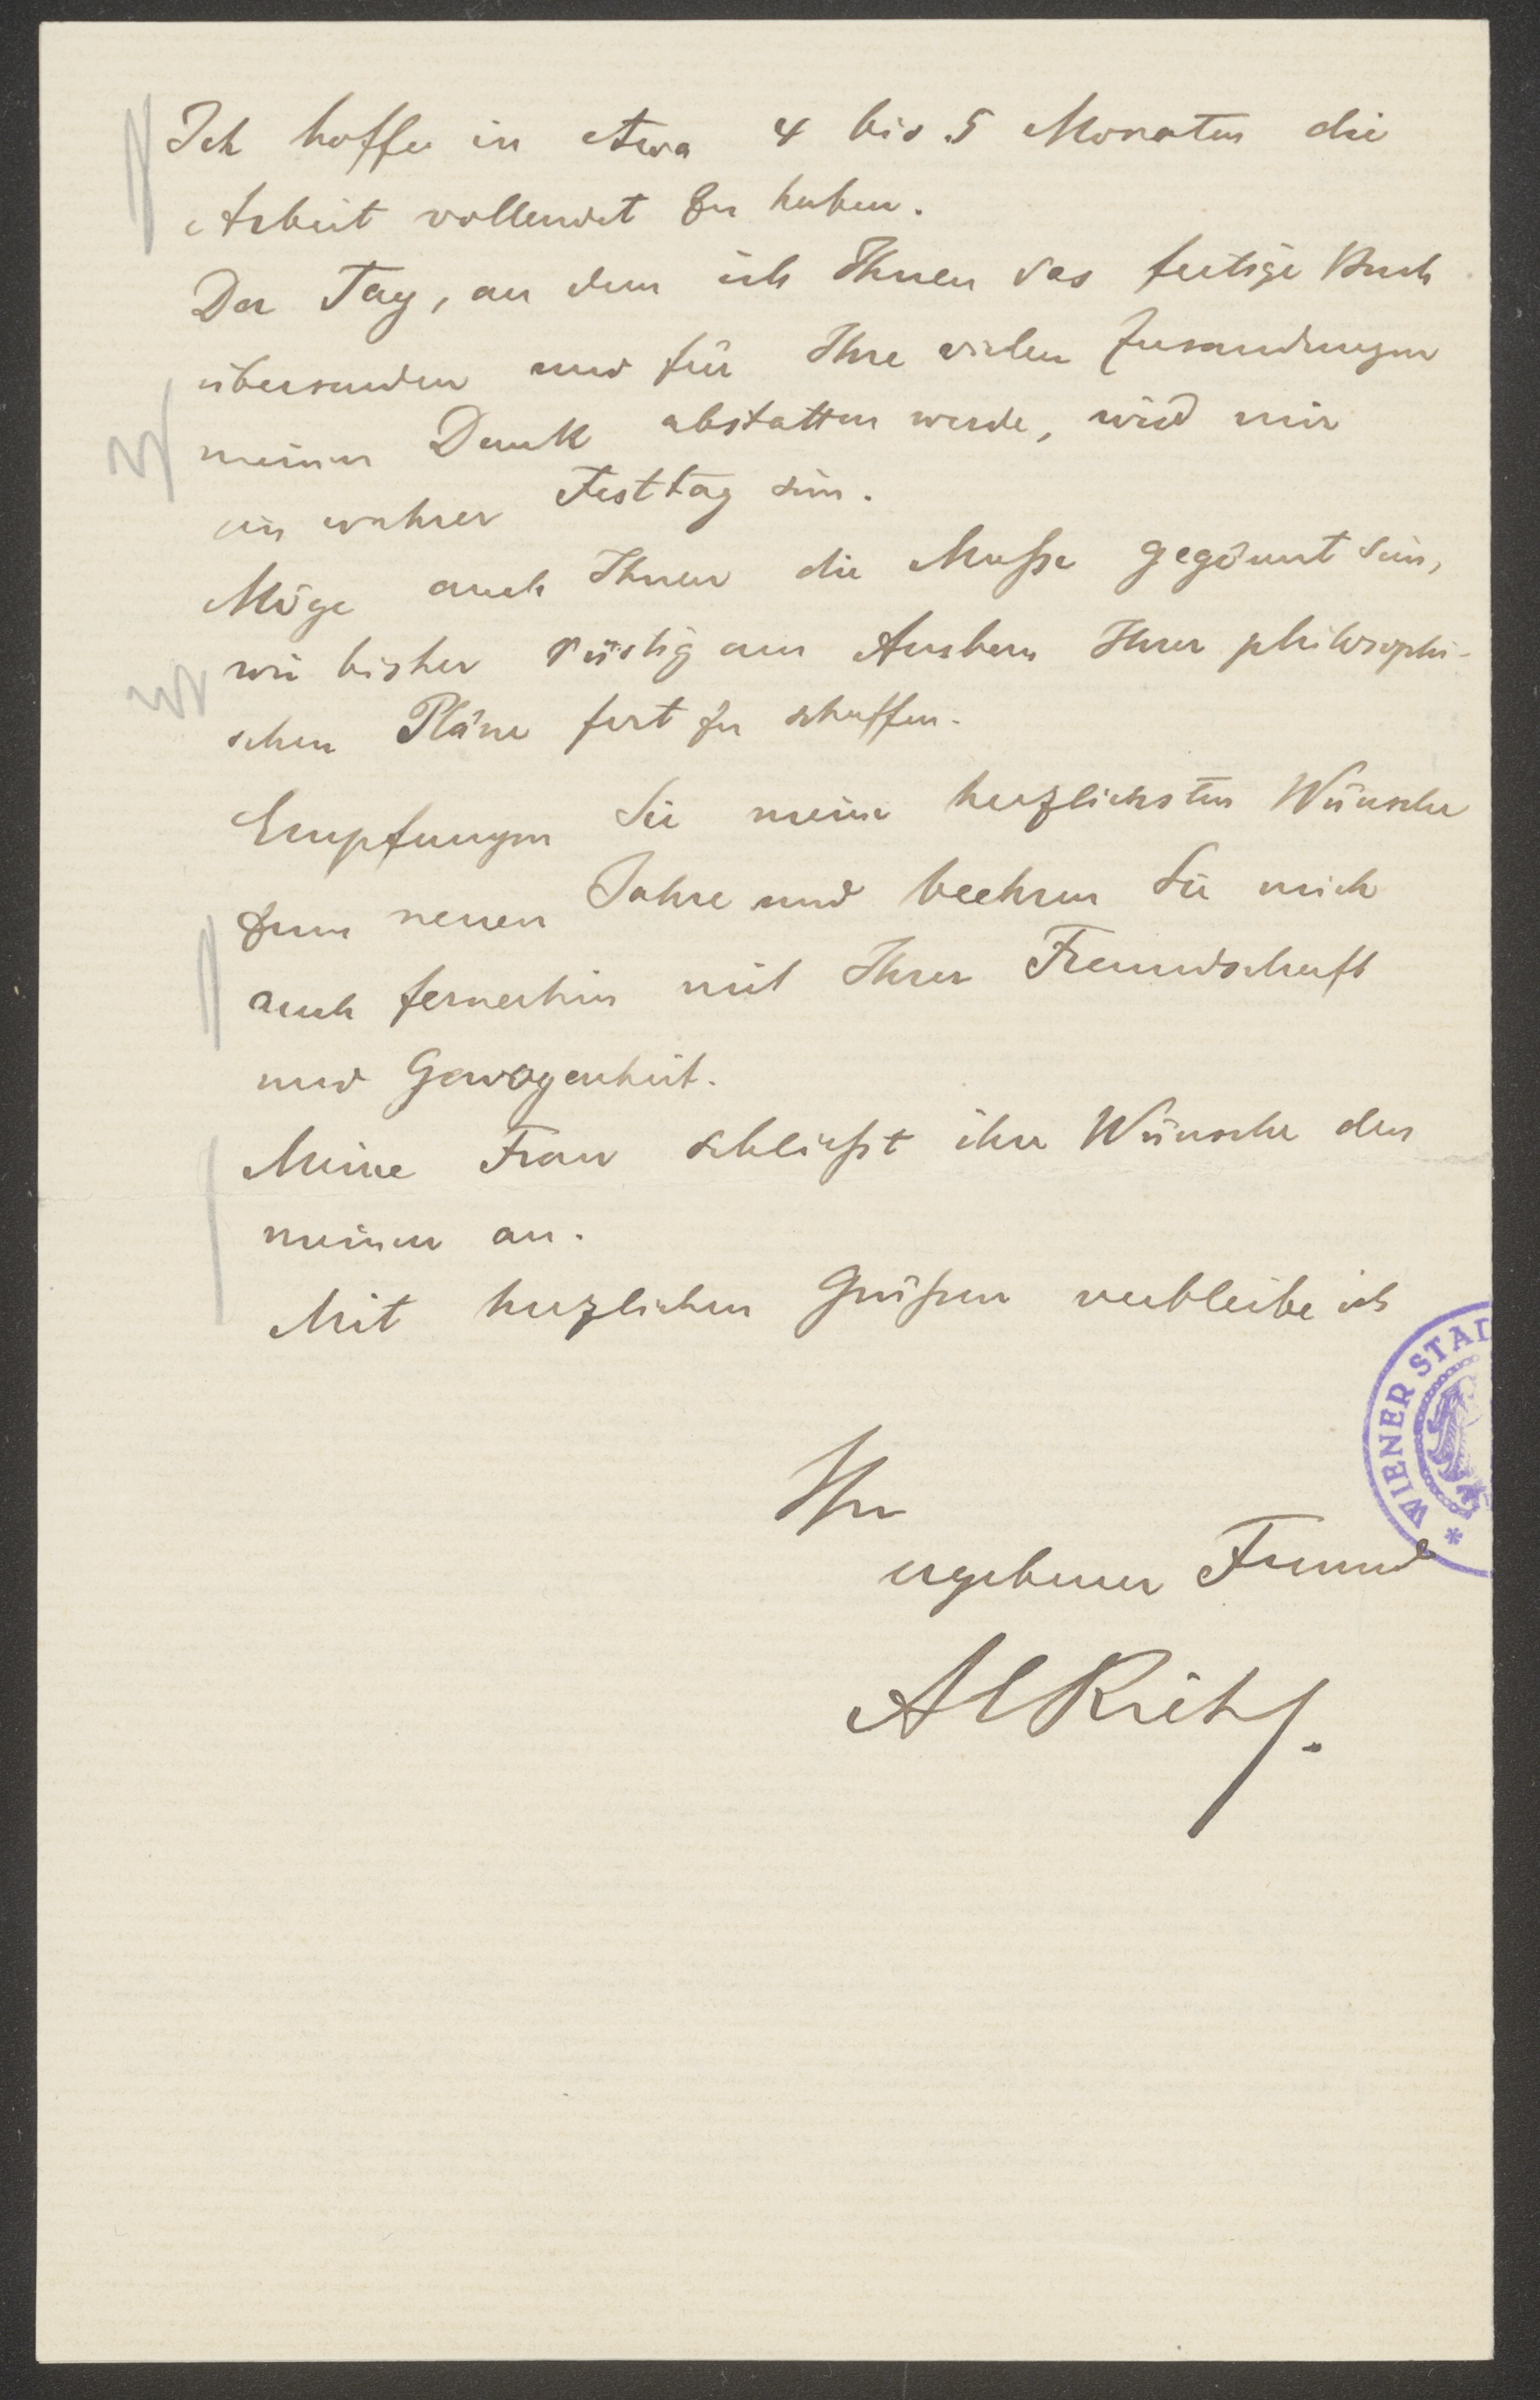 Ich hoffe in etwa 4 bis 5 Monaten die
Arbeit vollendet zu haben.
Der Tag, an dem ich Ihnen das fertige Buch
übersenden und für Ihre vielen Zusendungen
meinen Dank abstatten werde, wird mir
ein wahrer Festtag sein.
Möge auch Ihnen die Muße gegönnt sein,
wie bisher rüstig am Ausbau Ihrer philosophi-
schen Pläne fort zu schaffen.
Empfangen Sie meine herzlichsten Wünsche
zum neuen Jahre und beehren Sie mich
auch fernerhin mit Ihrer Freundschaft
und Gewogenheit.
Meine Frau schließt ihre Wünsche den
meinen an.
Mit herzlichen Grüßen verbleibe ich
WIENER STAD
Ihr
ergebener Freund
AlRiehl.